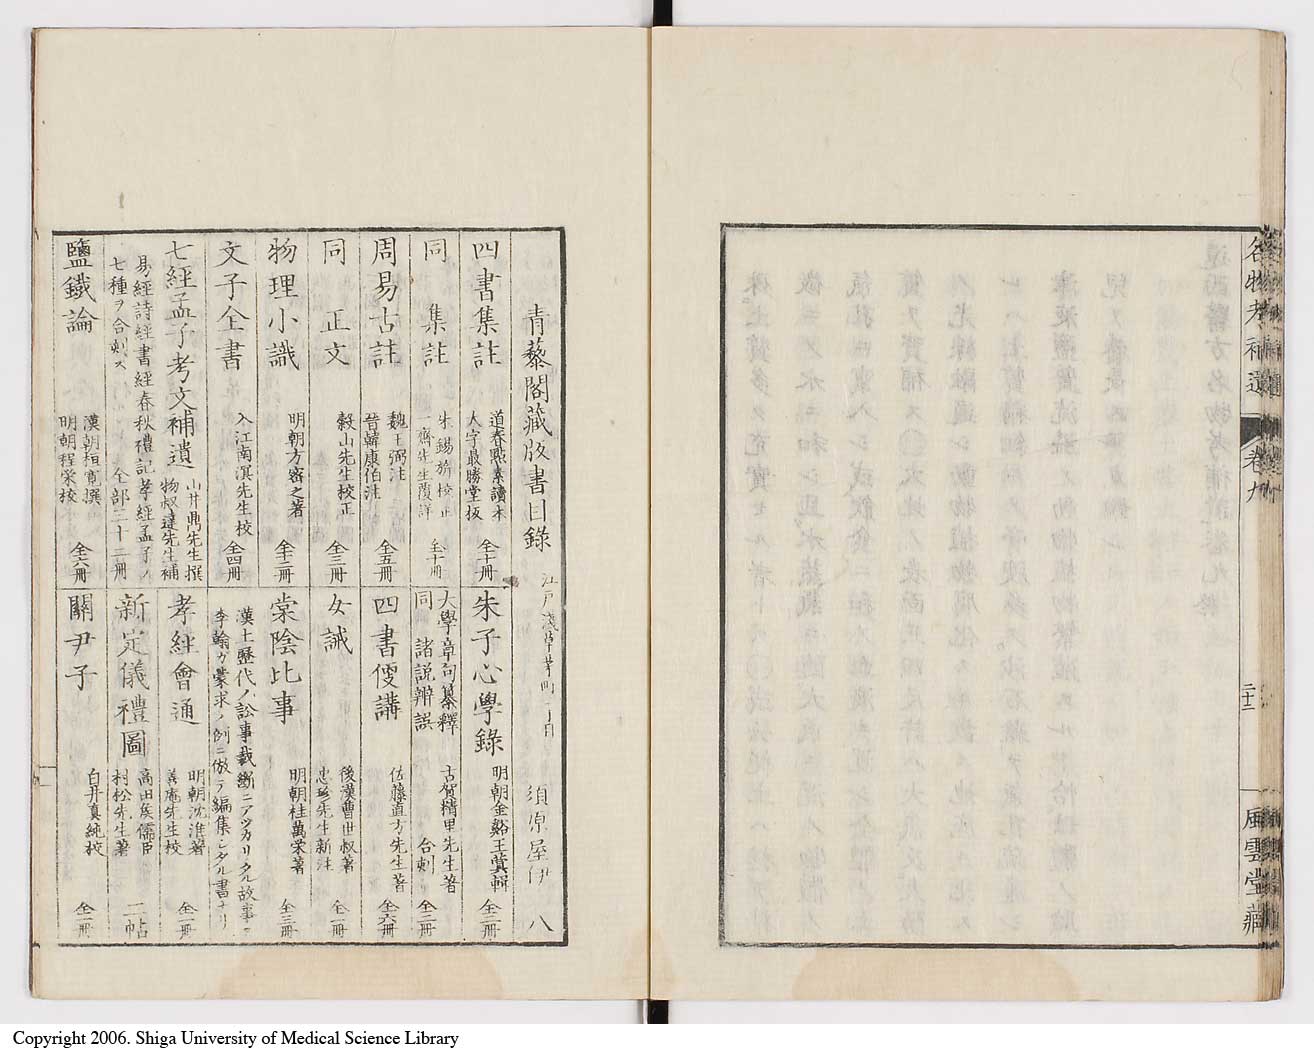 名物考補遺 卷九 二十二 風雲堂藏
青藜閣藏版書目錄 江戸淺草茅町二丁目 須原屋伊八
四書集註 道春點素讀本 大字最勝堂板 全十冊
同 集註 朱錫旂校正 一齋先生覆詳 全十冊
周易古註 魏王弼注 晉韓康伯注 全五冊
同 正文 穀山先生校正 全三冊
物理小識 明朝方密之著 全十二冊
文子全書 入江南溟先生校 全四冊
七經孟子考文補遺 山井鼎先生撰 物叔達先生補
易經詩經書經春秋禮記孝經孟子ノ
七種ヲ合刺ス 全部三十二冊
鹽鐵論 漢朝桓寬撰 明朝程榮校 全六冊
朱子心學錄 明朝金谿王蓂輯 全二冊
大學章句纂釋 古賀精里先生著
同 諸説辨誤 合刺 全三冊
四書便講 佐藤直方先生著 全六冊
女誡 後漢曹世叔著 忠珍先生新注 全一冊
棠陰比事 明朝桂萬榮著 全三冊
漢土歷代ノ訟事裁斷ニアヅカリタル故事ニ
李翰ガ蒙求ノ例ニ倣テ編集シタル書ナリ
孝經會通 明朝沈淮著 善庵先生校 全一冊
新定儀禮圖 高田矦儒臣 村松先生著 二帖
關尹子 白井真純校 全一冊
Copyright 2006. Shiga University of Medical Science Library